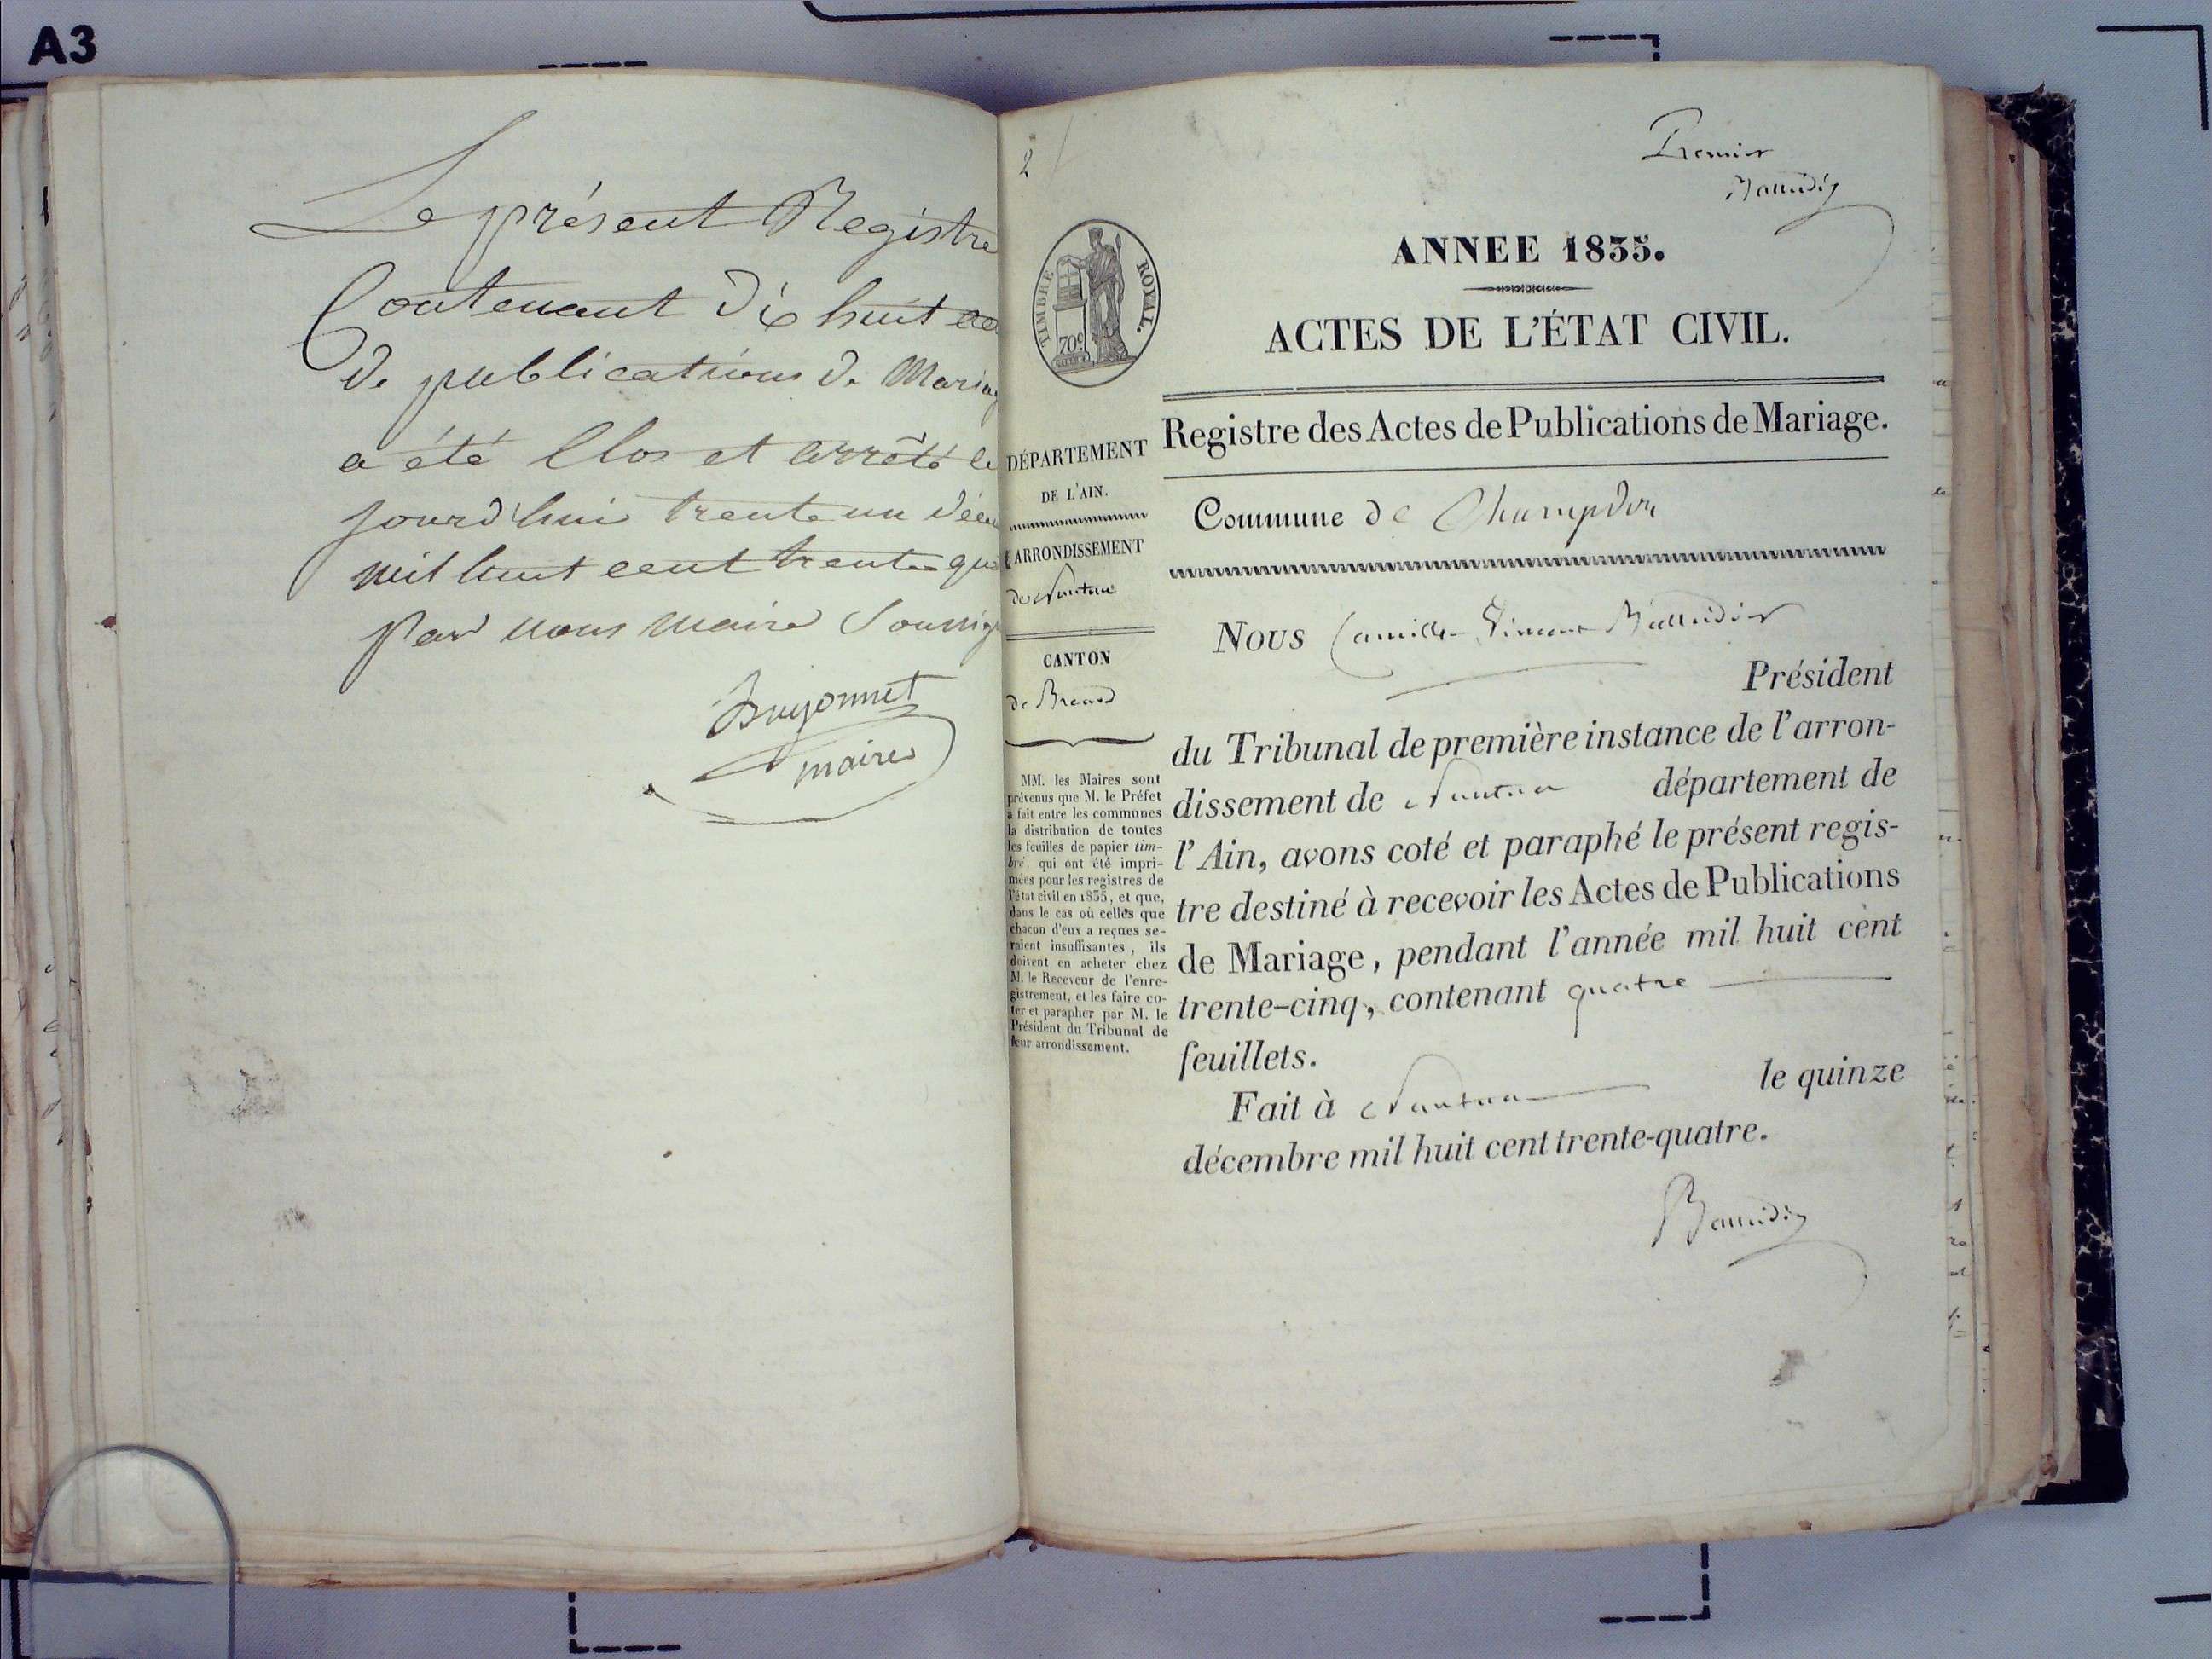 A3
Le présent Registre
Contenant dix huit ac
de publications de Mariag
a été Clos et arrêté ce
jourd'hui trente un déce
mil huit cent trente qua
par nous maire Soussig
Buyonnet
maire
2
Premier
TIMBRE ROYAL.
70c
ANNEE 1835.
ACTES DE L'ÉTAT CIVIL.
Registre des Actes de Publications de Mariage.
DÉPARTEMENT
DE L'AIN.
ARRONDISSEMENT
de Nantua
CANTON
de Brenod
MM. les Maires sont
prévenus que M. le Préfet
a fait entre les communes
la distribution de toutes
les feuilles de papier tim-
bré, qui ont été impri-
mées pour les registres de
l'état civil en 1835, et que,
dans le cas où celles que
chacun d'eux a reçues se-
raient insuffisantes, ils
doivent en acheter chez
M. le Receveur de l'enre-
gistrement, et les faire co-
ter et parapher par M. le
Président du Tribunal de
leur arrondissement.
Commune de Champdor
Nous Camille
Président
du Tribunal de première instance de l'arron-
dissement de Nantua département de
l'Ain, avons coté et paraphé le présent regis-
tre destiné à recevoir les Actes de Publications
de Mariage, pendant l'année mil huit cent
trente-cinq, contenant quatre
feuillets.
Fait à Nantua le quinze
décembre mil huit cent trente-quatre.